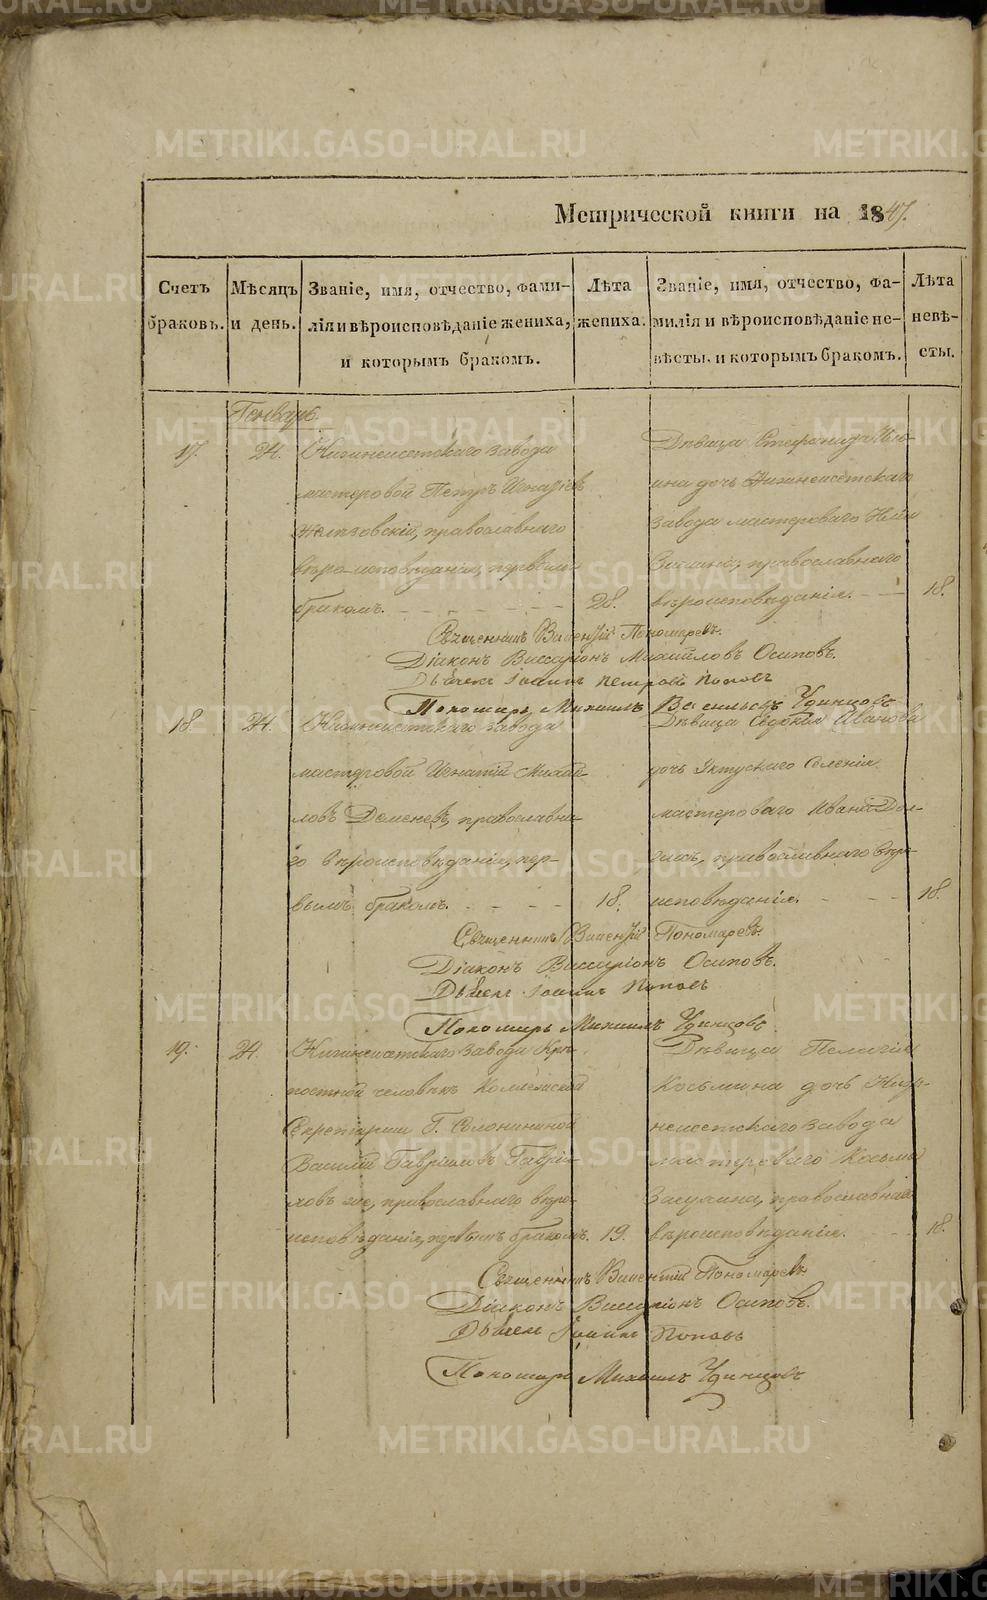 Метрической книги на 1847.
Счетъ браковъ.
Мѣсяцъ и день.
Званіе, имя, отчество, фами-
лія и вѣроисповѣданіе жениха,
и которымъ бракомъ.
Лѣта жениха.
Званіе, имя, отчество, фа-
милія и вѣроисповѣданіе не-
вѣсты, и которымъ бракомъ.
Лѣта невѣ-
сты.
Генварь.
17. 24.
Нижнеисетскаго завода
мастеровой Петръ Игнатіев
Желѣзовскій, православнаго
вѣроисповѣданія, первымъ
бракомъ. 28.
Дѣвица Стефанида Или-
ина дочь Нижнеисетскаго
завода мастероваго Иліи
православнаго
вѣроисповѣданія. 18.
Священникъ Викентій Пономаревъ.
Діаконъ Виссаріонъ Михайловъ Осиповъ.
Дьячекъ Іоаннъ Петровъ Поповъ
Пономарь Михаилъ Васильевъ Удинцовъ
18. 24.
Нижнеисетскаго завода
мастеровой Игнатій Михай-
ловъ Деменевъ, православна-
го вѣроисповѣданія, пер-
вымъ бракомъ. 18.
Дѣвица Евдокия Иванова
дочь Уктускаго Селенія
мастероваго Ивана Дол-
православнаго вѣро-
исповѣданія. 18.
Священникъ Викентій Пономаревъ.
Діаконъ Виссаріонъ Осиповъ.
Дьячекъ Іоаннъ Поповъ
Пономарь Михаилъ Удинцовъ
19. 24.
Нижнеисетскаго завода Крѣ-
постной человѣкъ Коллежской
Секретарши Г. Солонининой
Василій Гавріиловъ Гаврі-
ловъ же, православнаго вѣро-
исповѣданія, первымъ бракомъ. 19.
Дѣвица Пелагія
Косьмина дочь Ниж-
неисетскаго завода
мастероваго Косьмы
Засухина, православнаго
вѣроисповѣданія. 18.
Священникъ Викентій Пономаревъ
Діаконъ Виссаріонъ Осиповъ.
Дьячекъ Іоаннъ Поповъ
Пономарь Михаилъ Удинцовъ
METRIKI.GASO-URAL.RU